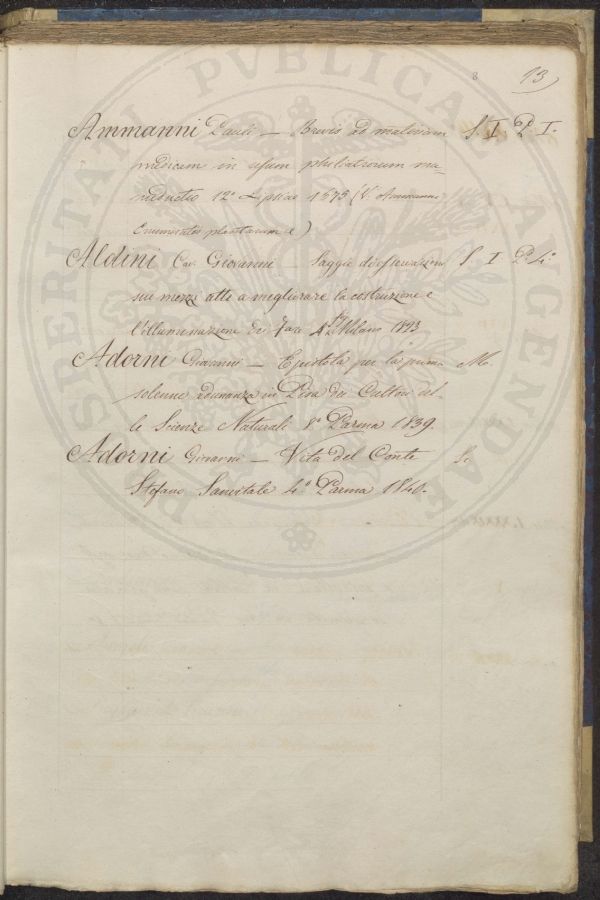 8 13
Ammanni Pauli — Brevis ad materiam S. I. P. I.
medicam in usum philiatrorum ma-
nuductio 12º Lipsiae 1675 (V. Ammanni
Enumeratio plantarum &)
Aldini Cav. Giovanni — Saggio di osservazioni S. I P. 4.º
sui mezzi atti a migliorare la costruzione e
l'illuminazione dei Fari Milano 1823
Adorni Giovanni — Epistola per la prima M.
solenne adunanza in Pisa dei Cultori del-
le Scienze Naturali 8º Parma 1839.
Adorni Giovanni — Vita del Conte S.
Stefano Sanvitale 4.º Parma 1840.
POSTERITATI PUBLICAE AUGENDAE